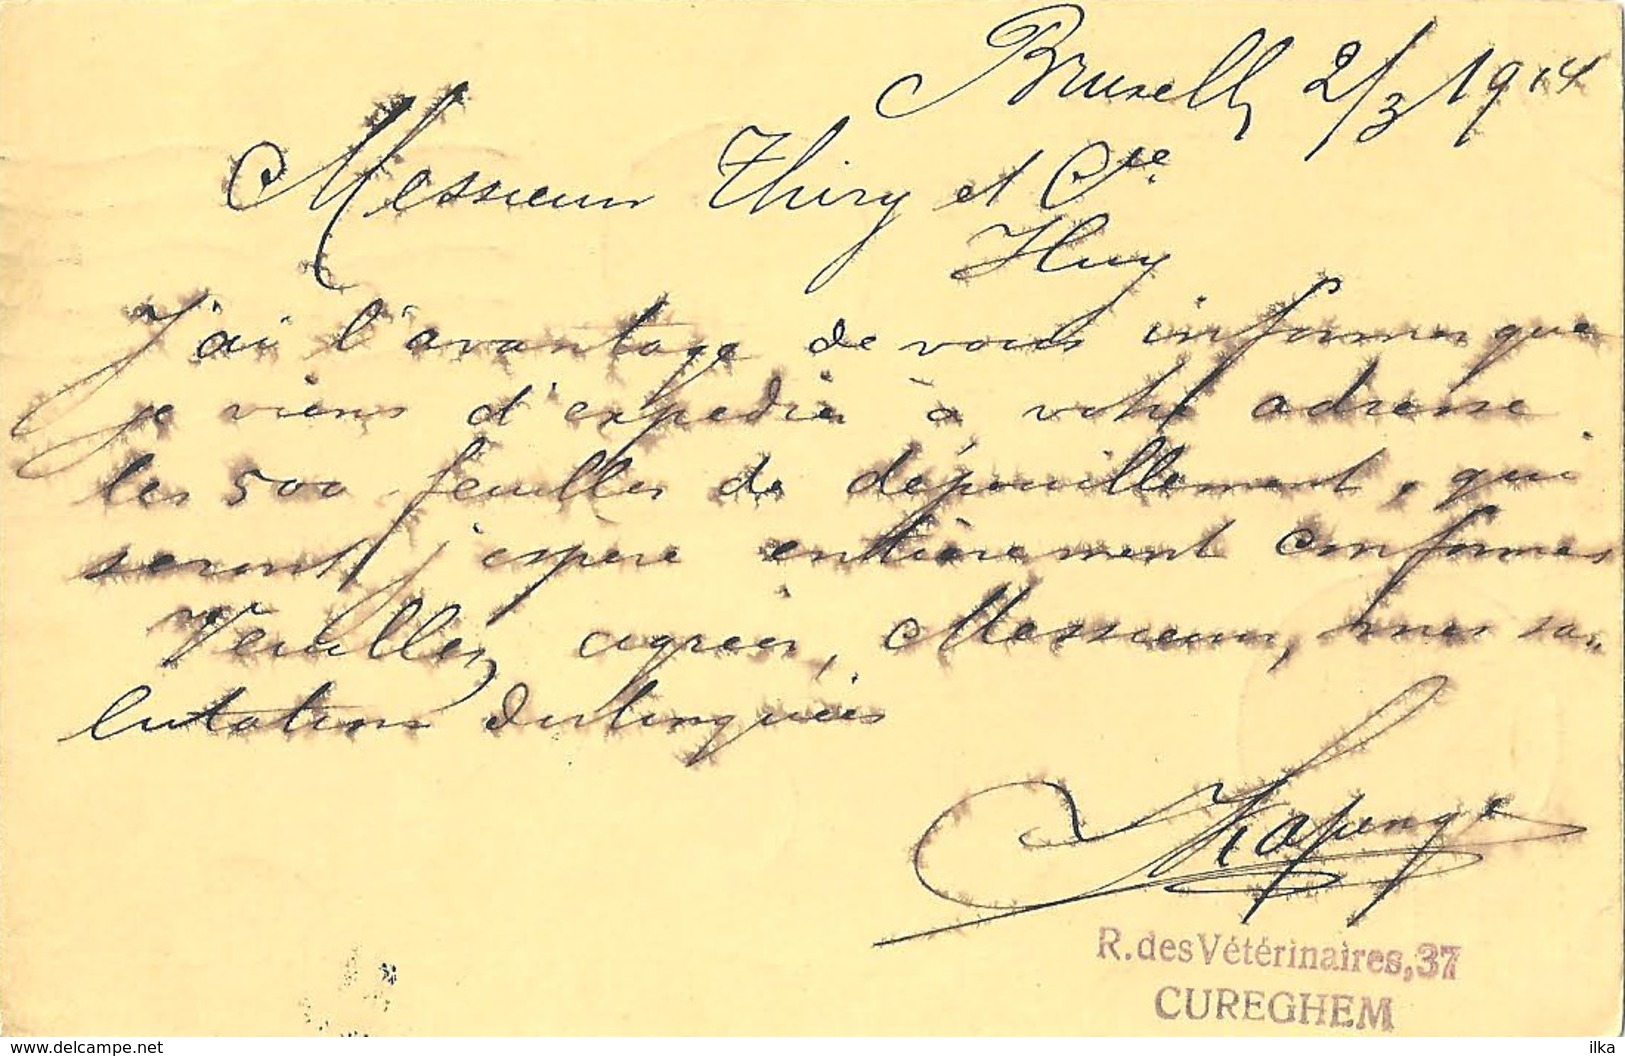 Bruxelles 2/3 1914
Messieurs Thiry et Cie
Huy
J'ai l'avantage de vous informer que
je viens d'expédier à votre adresse
les 500 feuilles de dépouillement, qui
seront, j'espère entièrement conformes
Veuillez agréer, Messieurs, mes sa-
lutations distinguées
R. des Vétérinaires, 37
CUREGHEM
www.delcampe.net
ilka